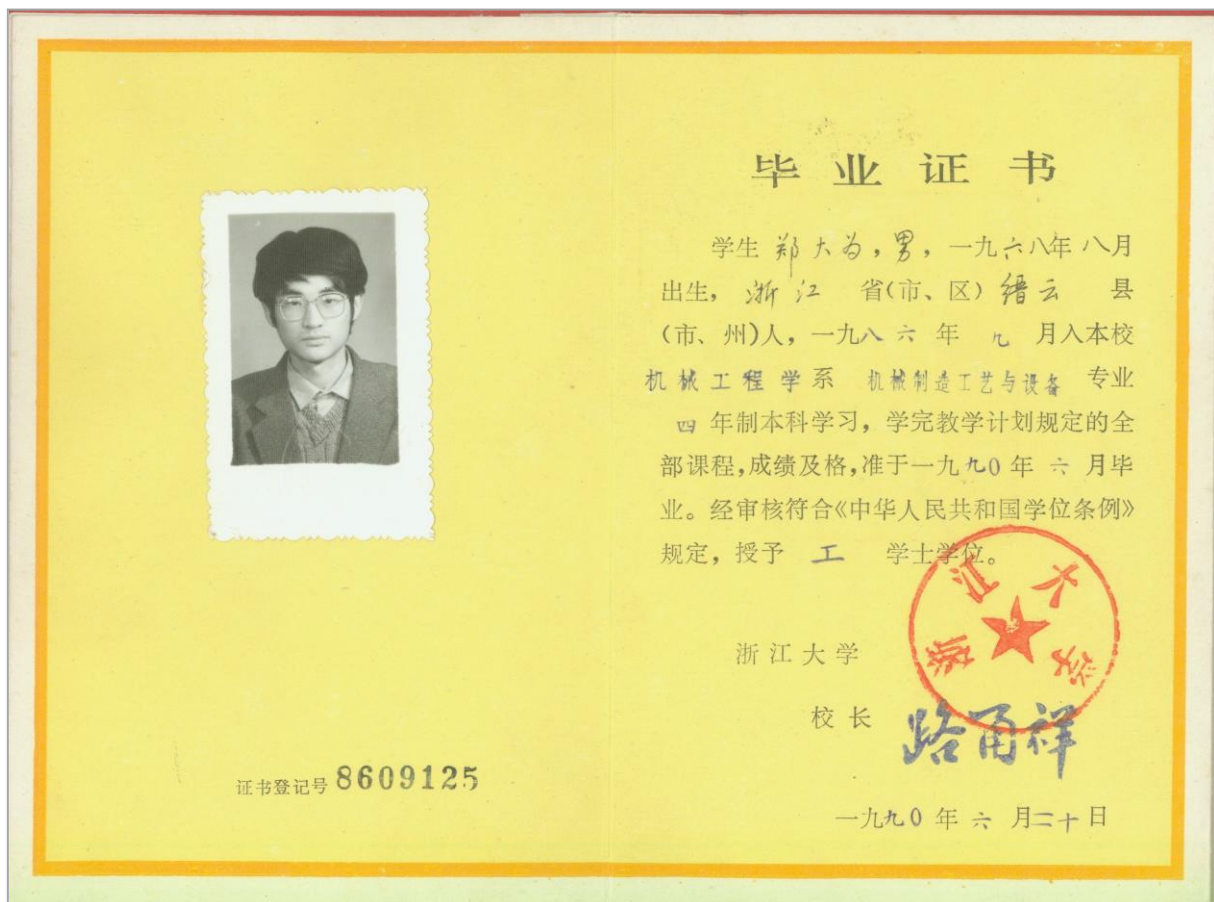 毕业证书
学生 郑大为，男，一九六八年 八月
出生， 浙江 省(市、区) 缙云 县
(市、州)人，一九八六 年 九 月入本校
机械工程学系 机械制造工艺与设备 专业
四 年制本科学习，学完教学计划规定的全
部课程，成绩及格，准于一九九0 年 六 月毕
业。经审核符合《中华人民共和国学位条例》
规定，授予 工 学士学位。
浙江大学
浙江大学
校长 路甬祥
一九九0 年 六 月二十日
证书登记号 8609125